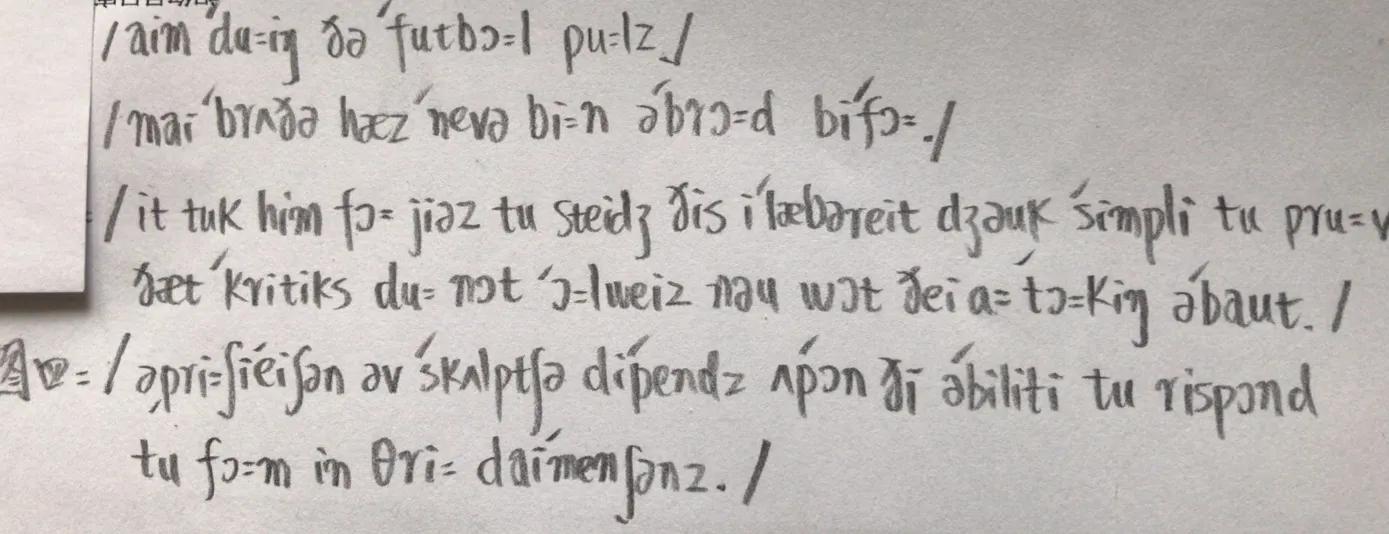 /aim ˈdu:iŋ ðə ˈfutbɔ:l pu:lz./
/mai ˈbrʌðə hæz ˈnevə bi:n əˈbrɔ:d biˈfɔ:./
/it tuk him fɔ: jiəz tu steidʒ ðis iˈlæbəreit dʒəuk ˈsimpli tu pru:v
ðæt ˈkritiks du: nɔt ˈɔ:lweiz nəu wɔt ðei a: ˈtɔ:kiŋ əˈbaut. /
/əˌpri:ʃiˈeiʃən əv ˈskʌlptʃə diˈpendz ʌˈpɔn ði əˈbiliti tu rispɔnd
tu fɔ:m in θri: daiˈmenʃənz. /